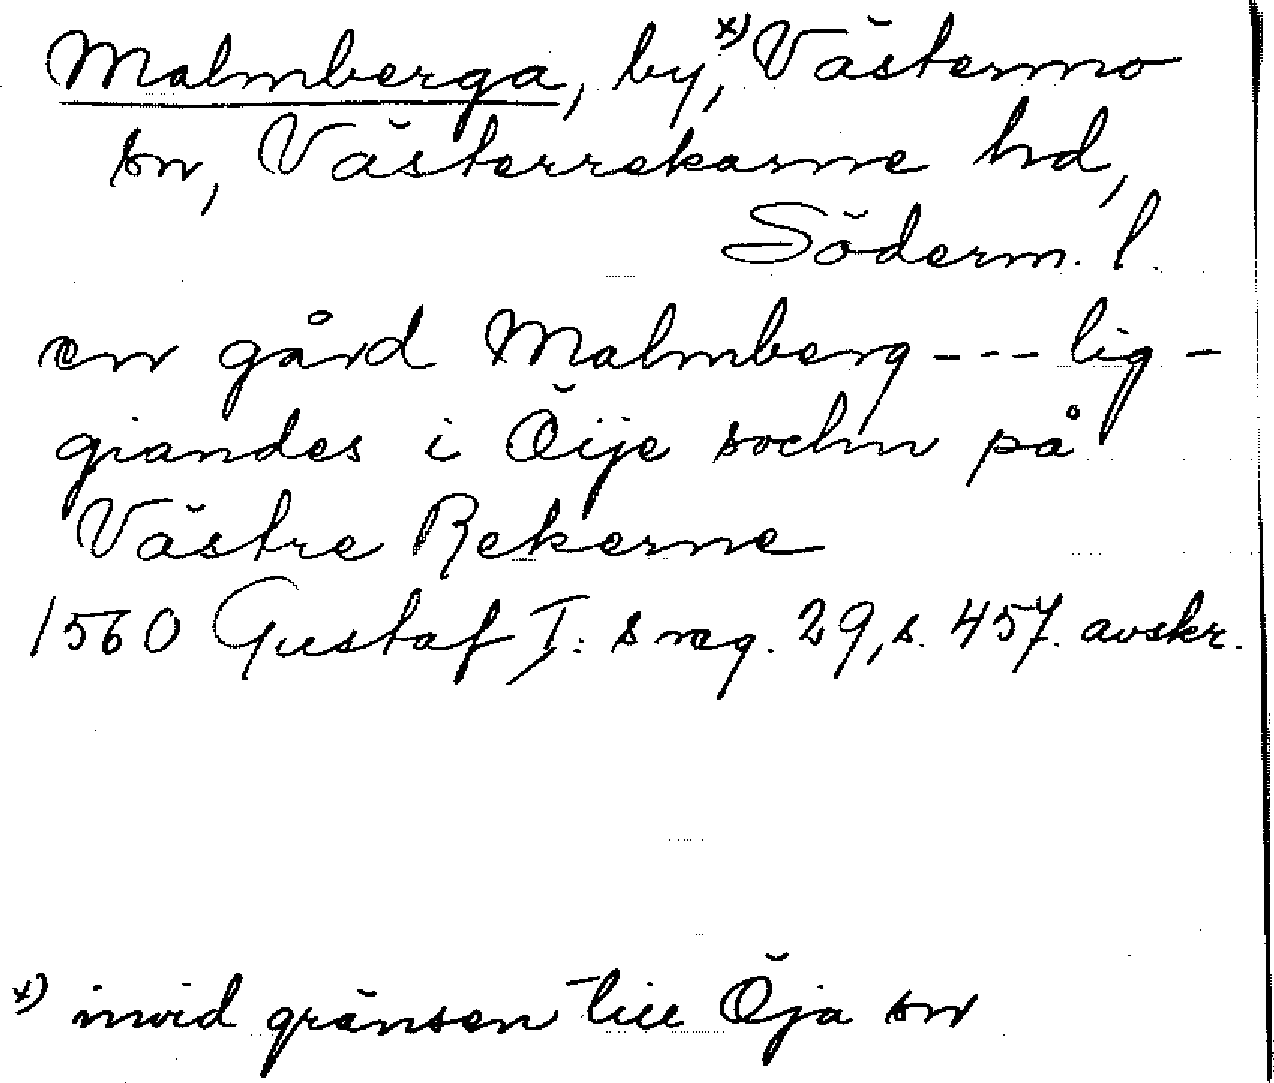 Malmberga, by,x) Västermo
sn, Västerrekarne hd,
Söderm. l.
en gård Malmberg --- lig-
giandes i Öije sochn på
Västre Rekerne
1560 Gustaf I:s reg. 29, s. 457. avskr.
x) invid gränsen till Öja sn